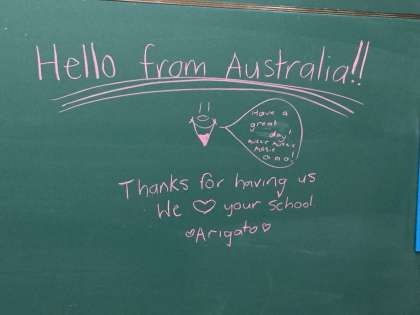 Hello from Australia!!
Have a
great
day!
Thanks for having us
We ♡ your school
♡Arigato♡